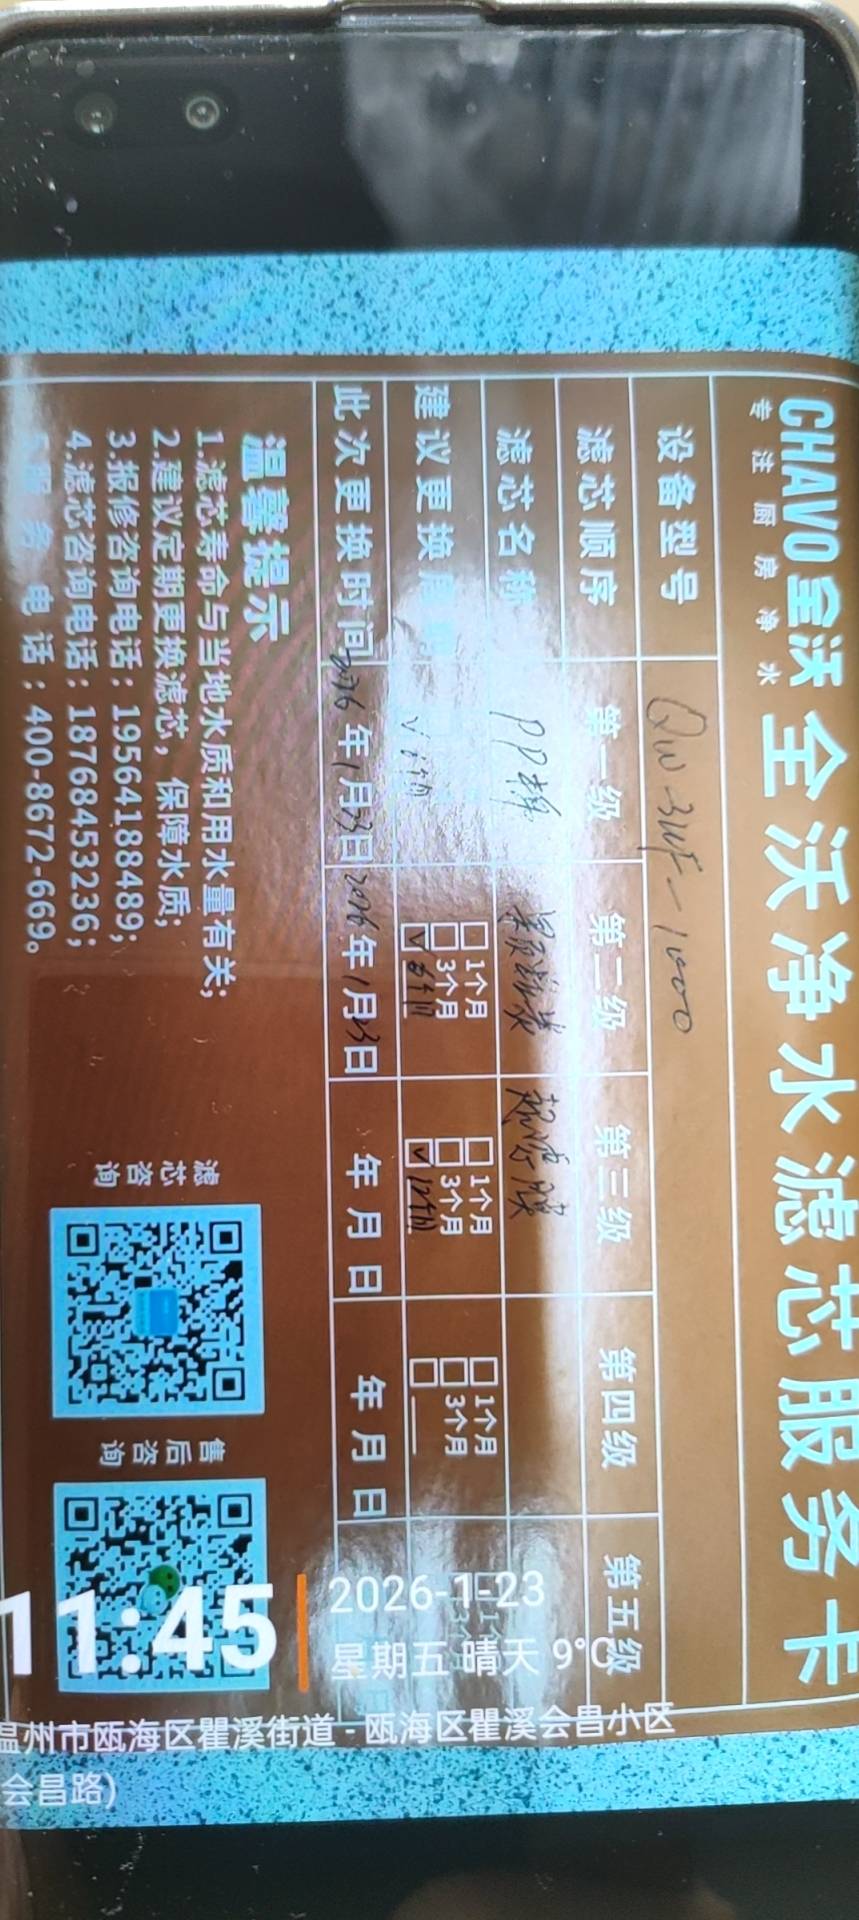 CHAVO全沃 全沃净水滤芯服务卡
专注厨房净水
设备型号 QW-3UF-1000
滤芯顺序 第一级 第二级 第三级 第四级 第五级
滤芯名称 PP棉 果壳炭 超滤膜
建议更换周期 ✓6个月 □1个月 □3个月 ☑6个月 □1个月 □3个月 ☑12个月 □1个月 □3个月 □
此次更换时间 2026年1月23日 2026年1月23日 年 月 日 年 月 日
温馨提示
1.滤芯寿命与当地水质和用水量有关;
2.建议定期更换滤芯,保障水质;
3.报修咨询电话:19564188489;
4.滤芯咨询电话:18768453236;
服务电话:400-8672-669。
滤芯咨询
售后咨询
11:45
2026-1-23
星期五 晴天 9°C
温州市瓯海区瞿溪街道 - 瓯海区瞿溪会昌小区
会昌路)